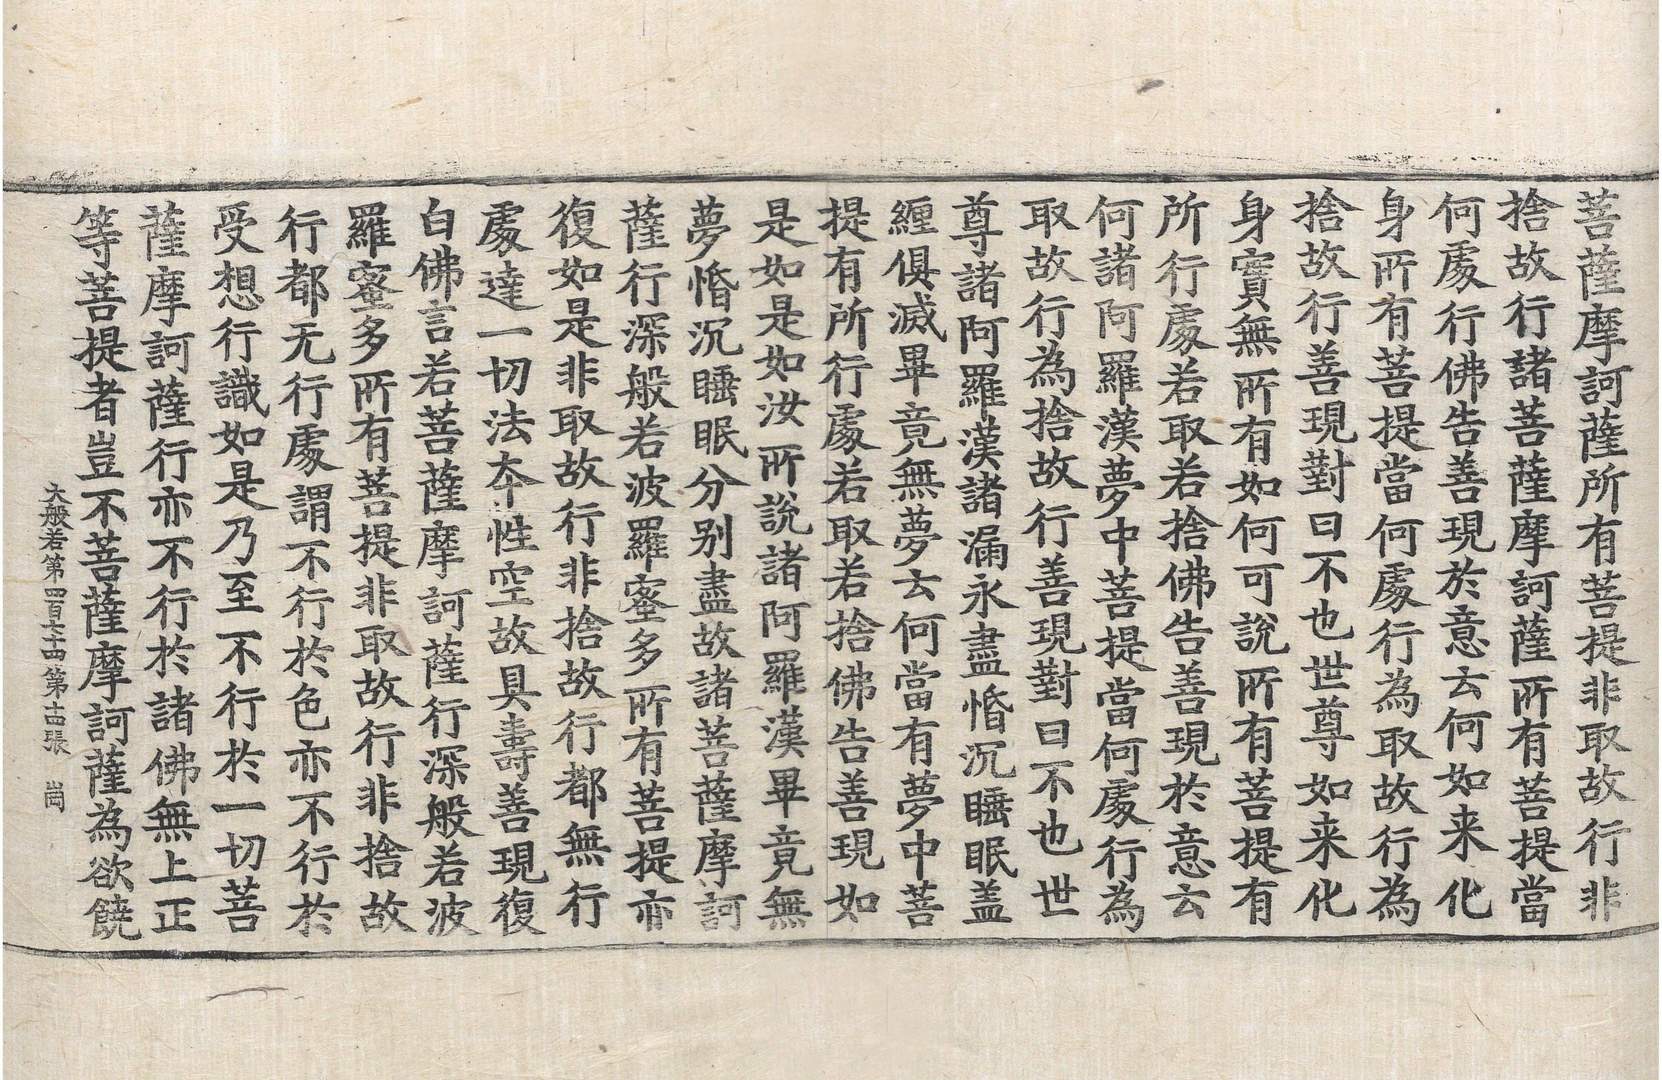 菩薩摩訶薩所有菩提非取故行非
捨故行諸菩薩摩訶薩所有菩提當
何處行佛告善現於意云何如来化
身所有菩提當何處行為取故行為
捨故行善現對曰不也世尊如来化
身實無所有如何可說所有菩提有
所行處若取若捨佛告善現於意云
何諸阿羅漢夢中菩提當何處行為
取故行為捨故行善現對曰不也世
尊諸阿羅漢諸漏永盡惛沉睡眠蓋
纏俱滅畢竟無夢云何當有夢中菩
提有所行處若取若捨佛告善現如
是如是如汝所說諸阿羅漢畢竟無
夢惛沉睡眠分別盡故諸菩薩摩訶
薩行深般若波羅蜜多所有菩提亦
復如是非取故行非捨故行都無行
處達一切法本性空故具壽善現復
白佛言若菩薩摩訶薩行深般若波
羅蜜多所有菩提非取故行非捨故
行都无行處謂不行於色亦不行於
受想行識如是乃至不行於一切菩
薩摩訶薩行亦不行於諸佛無上正
等菩提者豈不菩薩摩訶薩為欲饒
大般若第四百七十四第十古張 崗